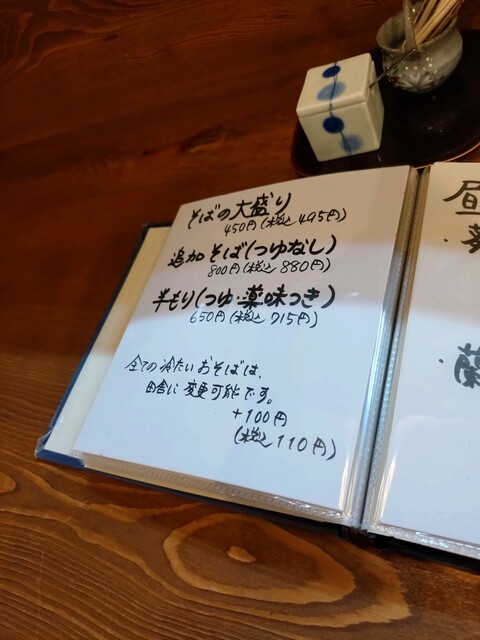 そばの大盛り
450円(税込495円)
追加そば(つゆなし)
800円(税込880円)
半もり(つゆ・薬味つき)
650円(税込715円)
全ての冷たいおそばは、
田舎に変更可能です。
+100円
(税込110円)
昼
蘭